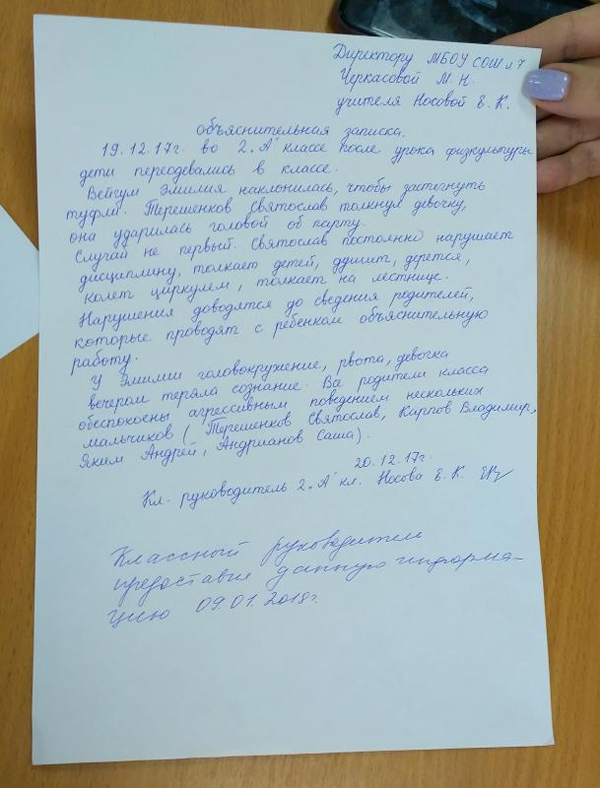 Директору МБОУ СОШ № 7
Черкасовой М. Н.
учителя Носовой Е. К.
объяснительная записка.
19.12.17г. во 2 „А" классе после урока физкультуры
дети переодевались в классе.
Вейгум Эмилия наклонилась, чтобы застегнуть
туфли. Терешенков Святослав толкнул девочку,
она ударилась головой об парту.
Случай не первый. Святослав постоянно нарушает
дисциплину, толкает детей, душит, дерется,
колет циркулем, толкает на лестнице.
Нарушения доводятся до сведения родителей,
которые проводят с ребенком объяснительную
работу.
У Эмилии головокружение, рвота, девочка
вечером теряла сознание. Все родители класса
обеспокоены агрессивным поведением нескольких
мальчиков (Терешенков Святослав, Карпов Владимир,
Яким Андрей, Андрианов Саша).
20.12.17г.
Кл. руководитель 2 „А" кл. Носова Е. К.
Классный руководитель
предоставил данную информа-
цию 09.01.2018г.